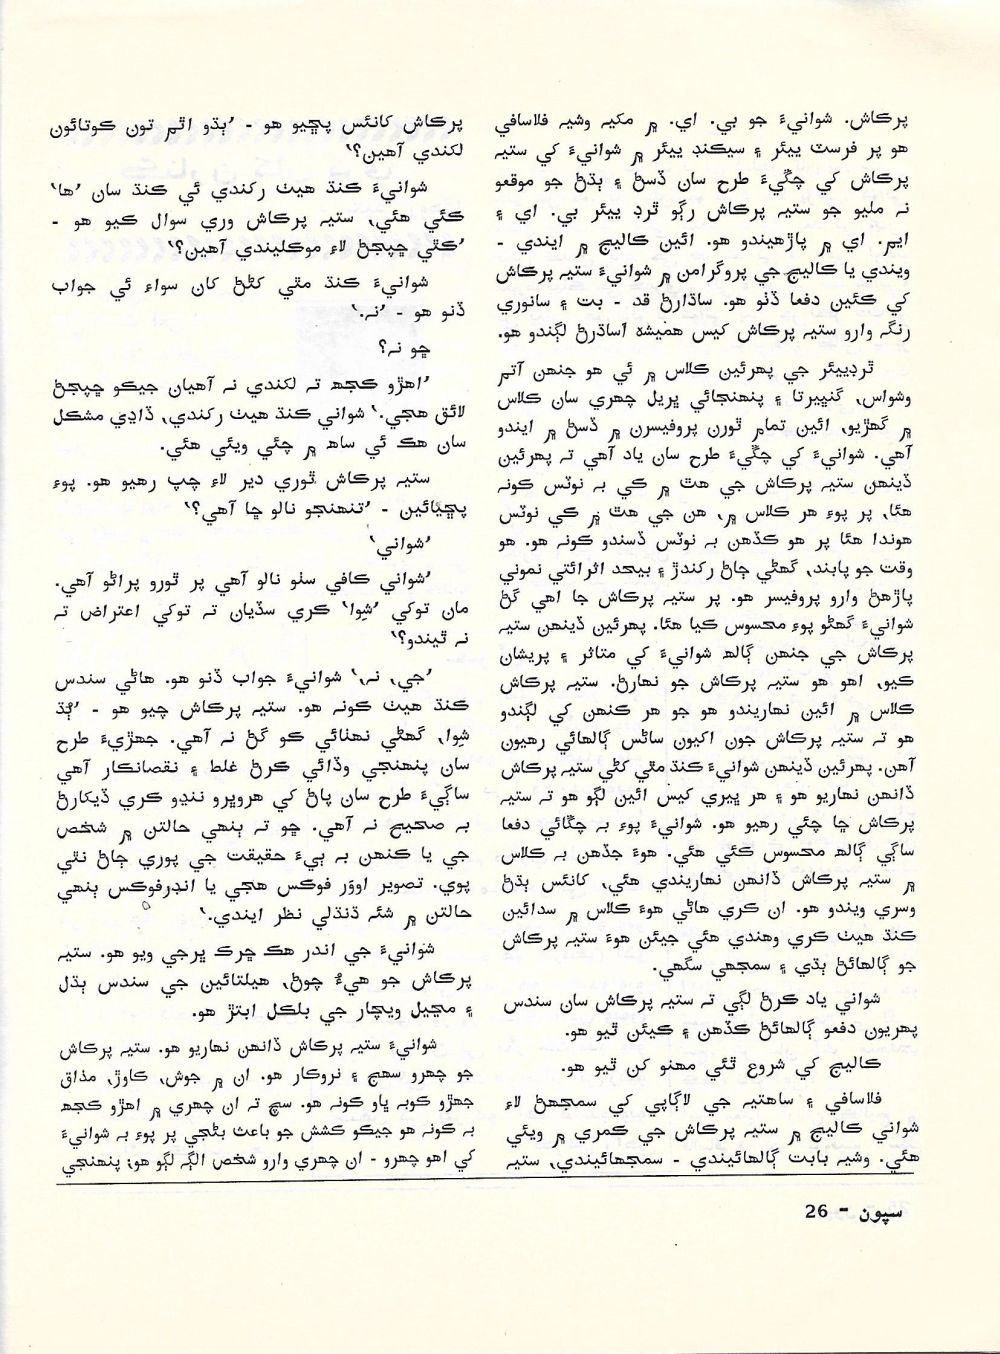 پرڪاش. شوانيءَ جو بي. اي. ۾ مکيہ وشيہ فلاسافي
هو پر فرسٽ ييئر ۽ سيڪنڊ ييئر ۾ شوانيءَ کي ستيہ
پرڪاش کي چڱيءَ طرح سان ڏسڻ ۽ ٻڌڻ جو موقعو
نہ مليو جو ستيہ پرڪاش رڳو ٿرڊ ييئر بي. اي ۽
ايم. اي ۾ پاڙهيندو هو. ائين ڪاليج ۾ ايندي -
ويندي يا ڪاليج جي پروگرامن ۾ شوانيءَ ستيہ پرڪاش
کي ڪئين دفعا ڏٺو هو. ساڌارڻ قد - بت ۽ سانوري
رنگہ وارو ستيہ پرڪاش کيس هميشہ اساڌرڻ لڳندو هو.
ٿرڊييئر جي پهرئين ڪلاس ۾ ئي هو جنهن آتم
وشواس، گنڀيرتا ۽ پنهنجائي ڀريل چهري سان ڪلاس
۾ گهڙيو، ائين تمام ٿورن پروفيسرن ۾ ڏسڻ ۾ ايندو
آهي. شوانيءَ کي چڱيءَ طرح سان ياد آهي تہ پهرئين
ڏينهن ستيہ پرڪاش جي هٿ ۾ کي بہ نوٽس ڪونہ
هئا، پر پوءِ هر ڪلاس ۾، هن جي هٿ ۾ کي نوٽس
هوندا هئا پر هو ڪڏهن بہ نوٽس ڏسندو ڪونہ هو. هو
وقت جو پابند، گهڻي ڄاڻ رکندڙ ۽ بيحد اثرائتي نموني
پاڙهڻ وارو پروفيسر هو. پر ستيہ پرڪاش جا اهي گڻ
شوانيءَ گهڻو پوءِ محسوس ڪيا هئا. پهرئين ڏينهن ستيہ
پرڪاش جي جنهن ڳالهہ شوانيءَ کي متاثر ۽ پريشان
ڪيو، اهو هو ستيہ پرڪاش جو نهارڻ. ستيہ پرڪاش
ڪلاس ۾ ائين نهاريندو هو جو هر ڪنهن کي لڳندو
هو تہ ستيہ پرڪاش جون اکيون ساڻس ڳالهائي رهيون
آهن. پهرئين ڏينهن شوانيءَ ڪنڌ مٿي کڻي ستيہ پرڪاش
ڏانهن نهاريو هو ۽ هر ڀيري کيس ائين لڳو هو تہ ستيہ
پرڪاش ڇا چئي رهيو هو. شوانيءَ پوءِ بہ چڱائي دفعا
ساڳي ڳالهہ محسوس ڪئي هئي. هوءَ جڏهن بہ ڪلاس
۾ ستيہ پرڪاش ڏانهن نهاريندي هئي، کانئس ٻڌڻ
وسري ويندو هو. ان ڪري هاڻي هوءَ ڪلاس ۾ سدائين
ڪنڌ هيٺ ڪري وهندي هئي جيئن هوءَ ستيہ پرڪاش
جو ڳالهائڻ ٻڌي ۽ سمجهي سگهي.
شواني ياد ڪرڻ لڳي تہ ستيہ پرڪاش سان سندس
پهريون دفعو ڳالهائڻ ڪڏهن ۽ ڪيئن ٿيو هو.
ڪاليج کي شروع ٿئي مهنو کن ٿيو هو.
فلاسافي ۽ ساهتيہ جي لاڳاپي کي سمجهڻ لاءِ
شواني ڪاليج ۾ ستيہ پرڪاش جي ڪمري ۾ ويئي
هئي. وشيہ بابت ڳالهائيندي - سمجهائيندي، ستيہ
پرڪاش کانئس پڇيو هو - ’ٻڌو اٿم تون ڪوتائون
لکندي آهين؟‘
شوانيءَ ڪنڌ هيٺ رکندي ئي ڪنڌ سان ’ها‘
ڪئي هئي، ستيہ پرڪاش وري سوال ڪيو هو -
’ڪٿي ڇپجڻ لاءِ موڪليندي آهين؟‘
شوانيءَ ڪنڌ مٿي کڻڻ کان سواءِ ئي جواب
ڏنو هو - ’نہ.‘
ڇو نہ؟
’اهڙو ڪجهہ تہ لکندي نہ آهيان جيڪو ڇپجڻ
لائق هجي.‘ شواني ڪنڌ هيٺ رکندي، ڏاڍي مشڪل
سان هڪ ئي ساهہ ۾ چئي ويئي هئي.
ستيہ پرڪاش ٿوري دير لاءِ چپ رهيو هو. پوءِ
پڇيائين - ’تنهنجو نالو ڇا آهي؟‘
’شواني‘
’شواني ڪافي سٺو نالو آهي پر ٿورو پراڻو آهي.
مان توکي ’شِوا‘ ڪري سڏيان تہ توکي اعتراض تہ
نہ ٿيندو؟‘
’جي، نہ،‘ شوانيءَ جواب ڏنو هو. هاڻي سندس
ڪنڌ هيٺ ڪونہ هو. ستيہ پرڪاش چيو هو - ’ٻڌ
شِوا، گهڻي نهٺائي ڪو گڻ نہ آهي. جهڙيءَ طرح
سان پنهنجي وڏائي ڪرڻ غلط ۽ نقصانڪار آهي
ساڳيءَ طرح سان پاڻ کي هروڀرو ننڍو ڪري ڏيکارڻ
بہ صحيح نہ آهي. ڇو تہ ٻنهي حالتن ۾ شخص
جي يا ڪنهن بہ ٻيءَ حقيقت جي پوري ڄاڻ نٿي
پوي. تصوير اووَر فوڪس هجي يا انڊرفوڪس ٻنهي
حالتن ۾ شئہ ڌنڌلي نظر ايندي.‘
شوانيءَ جي اندر هڪ ڇرڪ ڀرجي ويو هو. ستيہ
پرڪاش جو هيءُ چوڻ، هيلتائين جي سندس ٻڌل
۽ مڃيل ويچار جي بلڪل ابتڙ هو.
شوانيءَ ستيہ پرڪاش ڏانهن نهاريو هو. ستيہ پرڪاش
جو چهرو سهج ۽ نروڪار هو. ان ۾ جوش، ڪاوڙ، مذاق
جهڙو ڪوبہ ڀاو ڪونہ هو. سچ تہ ان چهري ۾ اهڙو ڪجهہ
بہ ڪونہ هو جيڪو ڪشش جو باعث بڻجي پر پوءِ بہ شوانيءَ
کي اهو چهرو - ان چهري وارو شخص الڳہ لڳو هو؛ پنهنجي
سپون - 26